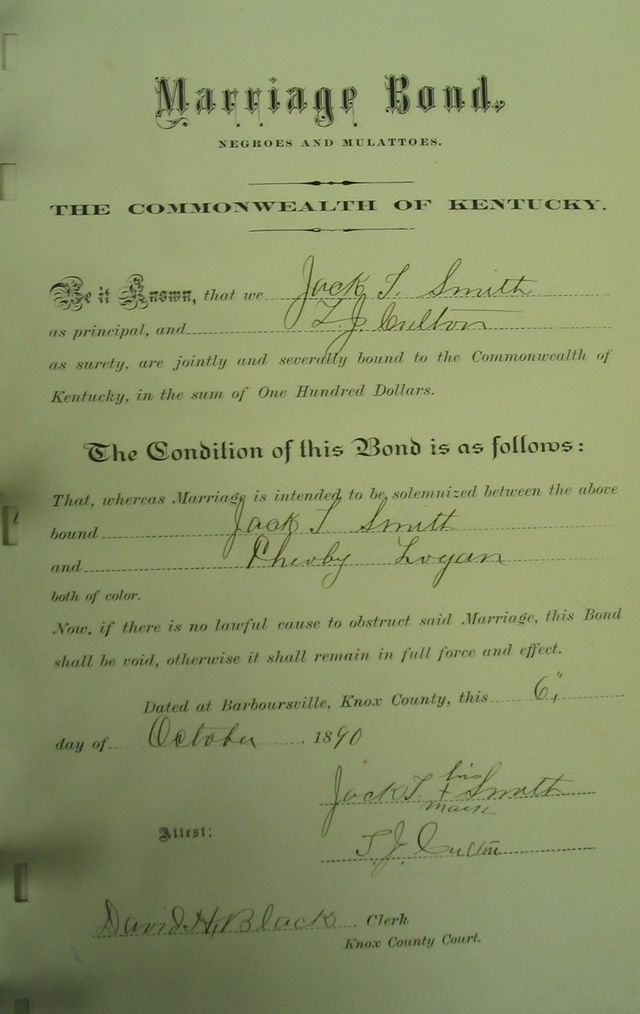 Marriage Bond.
NEGROES AND MULATTOES.
THE COMMONWEALTH OF KENTUCKY.
Be it Known, that we Jack T. Smith
as principal, and T. J. Culton
as surety, are jointly and severally bound to the Commonwealth of
Kentucky, in the sum of One Hundred Dollars.
The Condition of this Bond is as follows:
That, whereas Marriage is intended to be solemnized between the above
bound Jack T Smith
and Logan
both of color.
Now, if there is no lawful cause to obstruct said Marriage, this Bond
shall be void, otherwise it shall remain in full force and effect.
Dated at Barboursville, Knox County, this 6"
day of October 1890
Jack T. his + mark Smith
Attest:
T. J. Culton
David H. Black Clerk
Knox County Court.